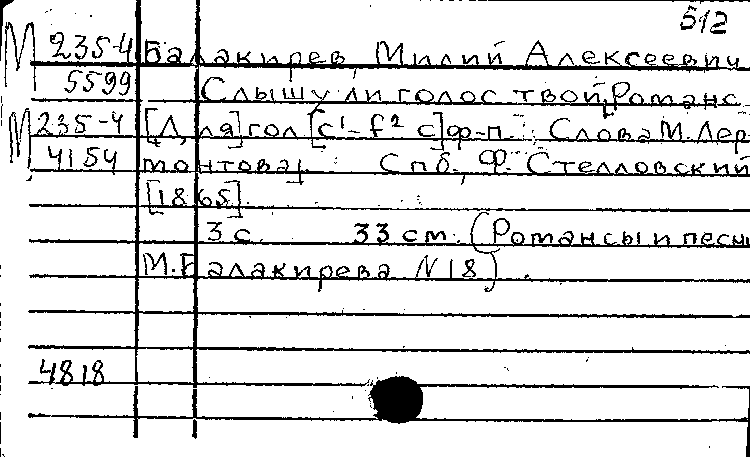 512
М 235-4 Балакирев, Милий Алексеевич
5599 Слышу ли голос твой, Романс
М 235-4 [Д]ля] гол [с¹-f² с] ф-п. Слова М. Лер-
4154 монтова. Спб., Ф. Стелловский
[1865].
3 с. 33 см. (Романсы и песни
М. Балакирева N 18).
4818